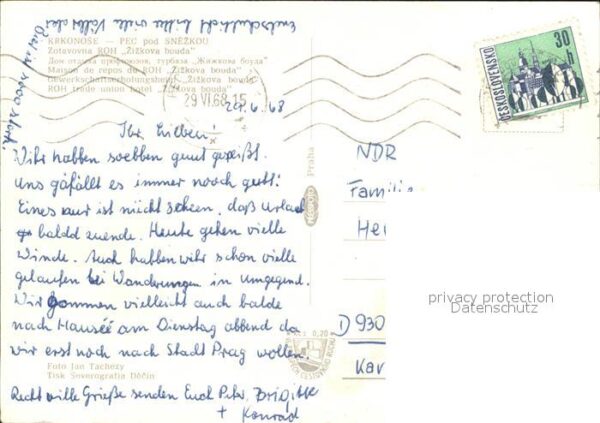 Entschuldigt bitte viele Fähler
KRKONOŠE — PEC pod SNĚŽKOU
Zotavovna ROH „Žižkova bouda"
Дом отдыха профсоюзов, турбаза „Жижкова боуда"
Maison de repos du ROH „Žižkova bouda"
Gewerkschaftserholungsheim „Žižkova bouda"
ROH trade union hotel „Žižkova bouda"
29.VI.68-15
29.6.68
ČESKOSLOVENSKO
30 h
Ihr Lieben!
Wihr habben soebben guut gespeißt.
Uns gäfällt es immer nooch gutt!
Eines nur ist niicht scheen, daß Urlaub
baldd zuende. Heute gehen vielle
Winde. Auch habben wihr schon vielle
gelaufen bei Wanderungen in Umgegend.
Wir kommen vielleicht auch balde
nach Hausée am Dienstag abbend da
wir erst noch nach Stadt Prag wollen.
Foto Jan Tachezy
Tisk Severografia Děčín
Recht ville Grieße senden Euch Peter, Brigitte
+ Konrad
Praha
NDR
Famili
He
D 930
Kar
Kčs 0,20
privacy protection
Datenschutz